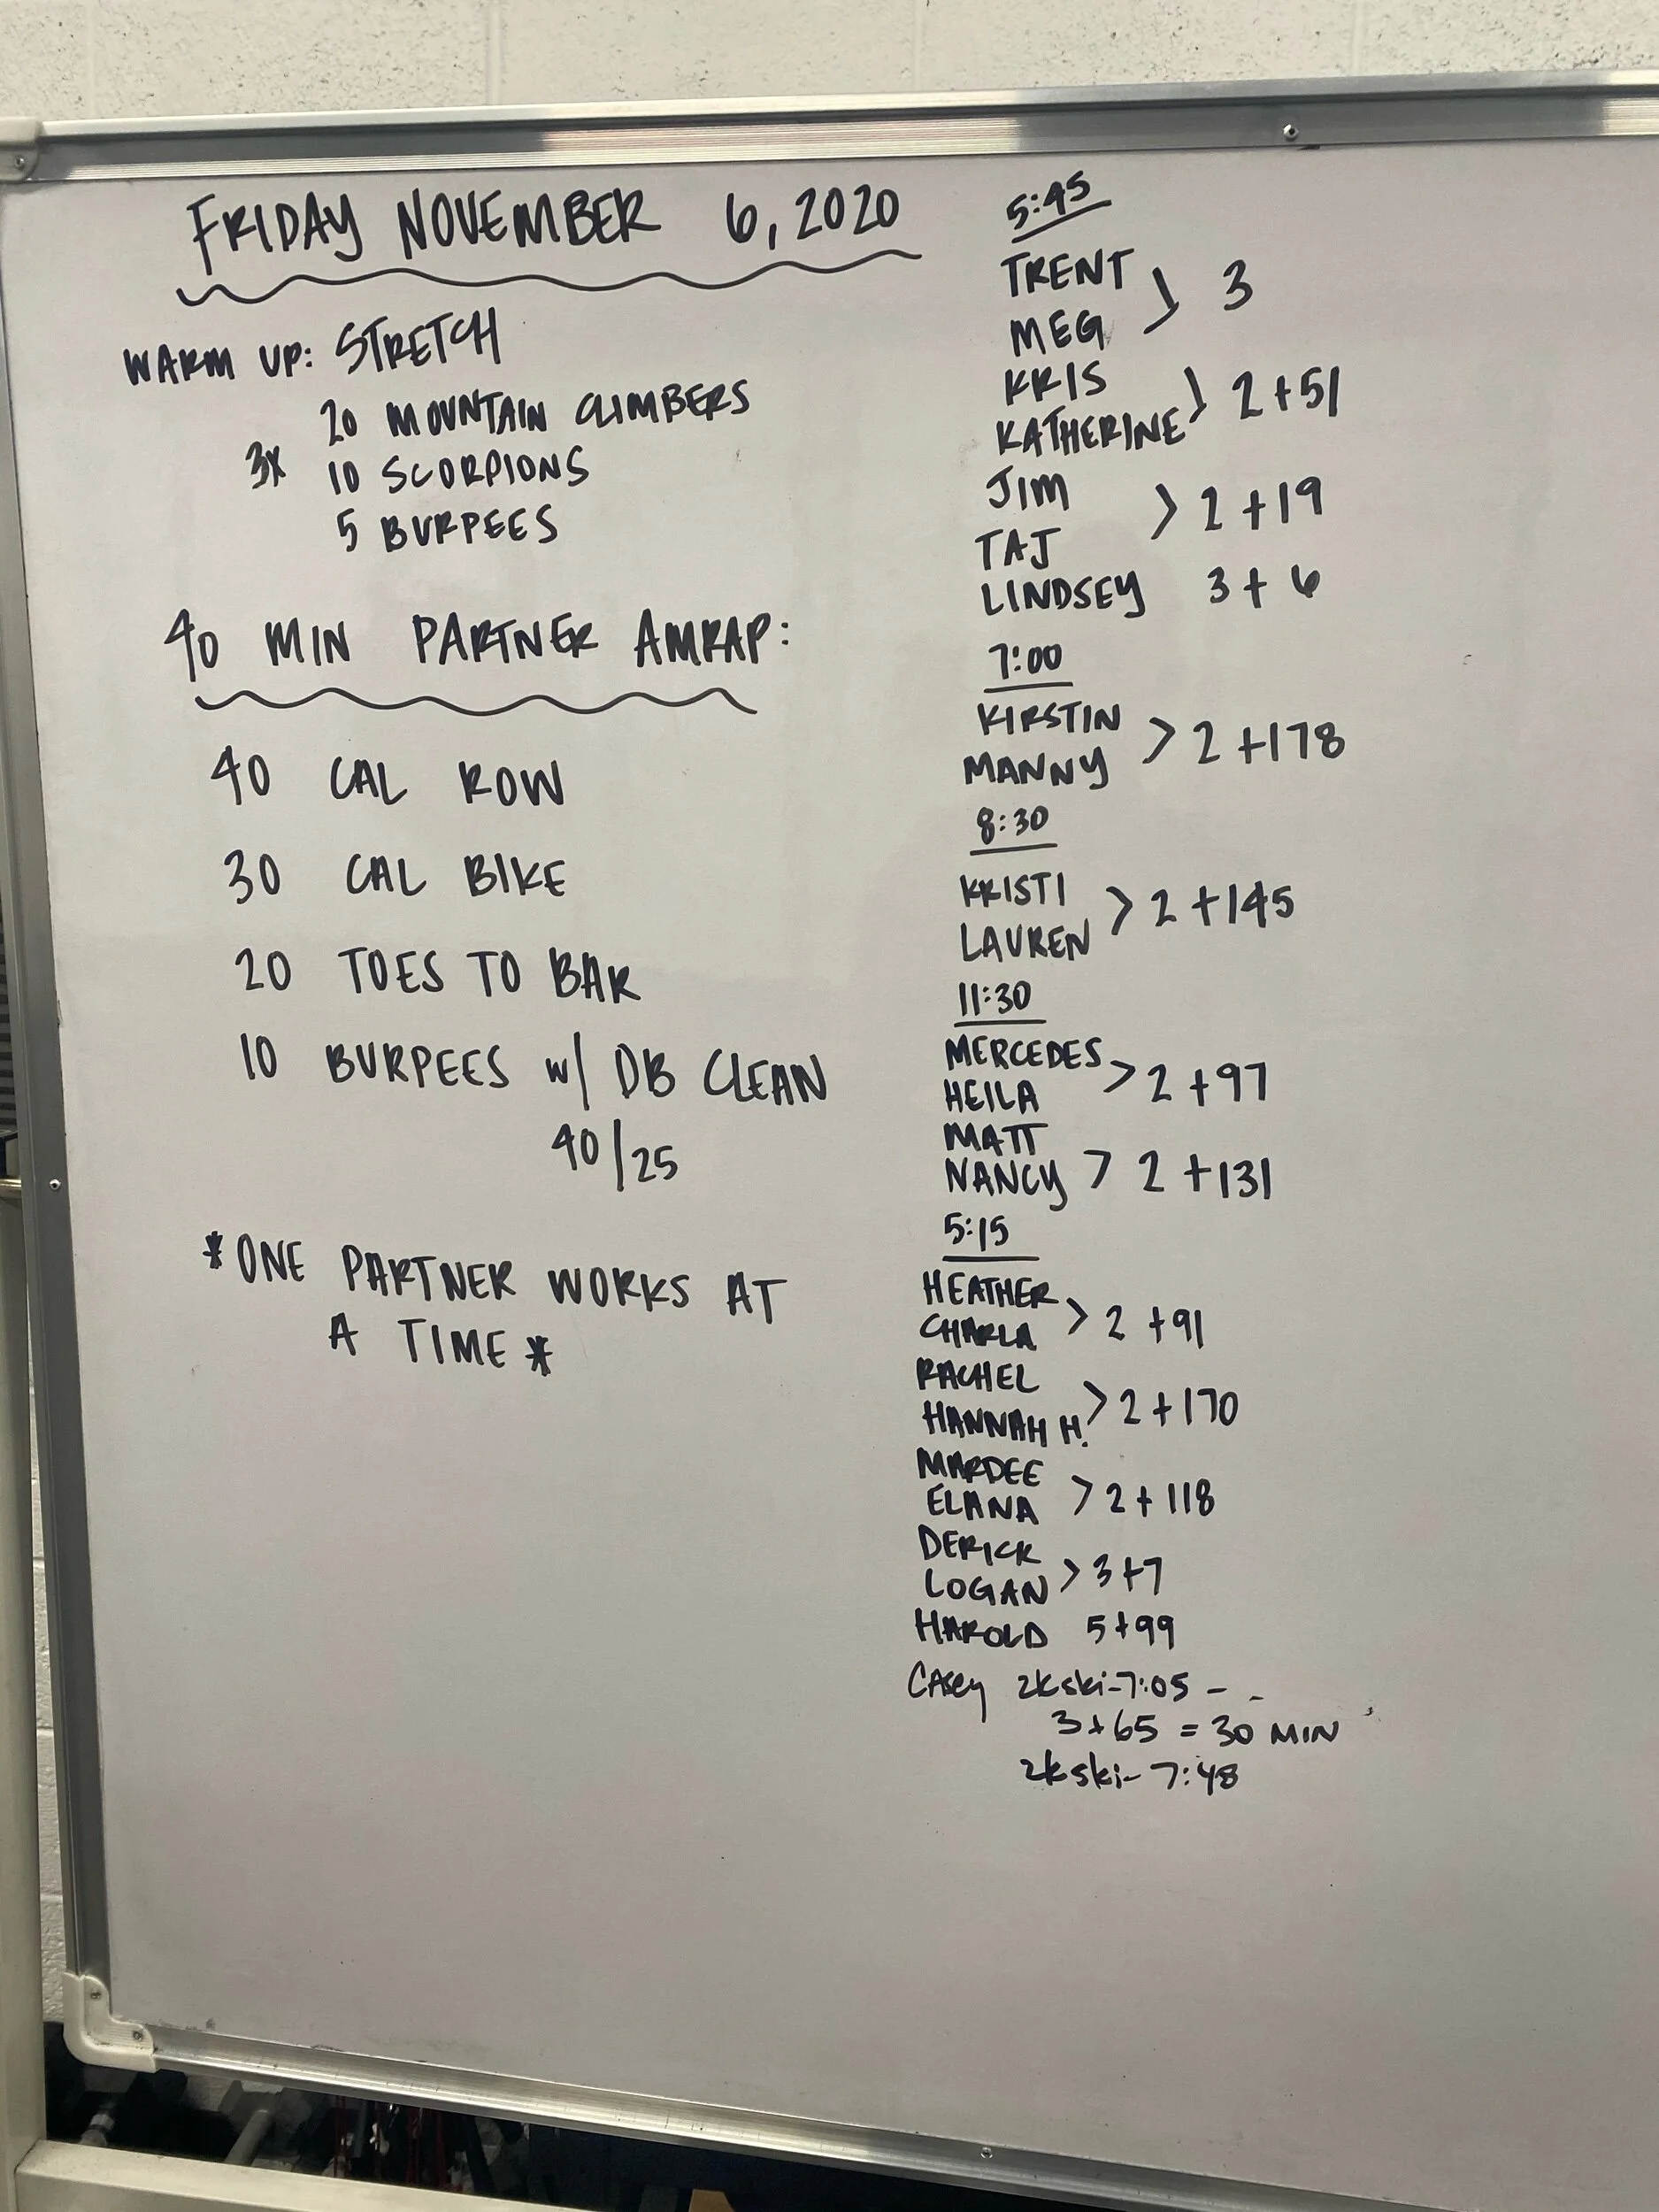 FRIDAY NOVEMBER 6, 2020
WARM UP: STRETCH
20 MOUNTAIN CLIMBERS
3X 10 SCORPIONS
5 BURPEES
40 MIN PARTNER AMRAP:
40 CAL ROW
30 CAL BIKE
20 TOES TO BAR
10 BURPEES w/ DB CLEAN
40/25
*ONE PARTNER WORKS AT
A TIME*
5:45
TRENT
MEG } 3
KRIS
KATHERINE } 2+51
JIM
TAJ > 2+19
LINDSEY 3+6
7:00
KIRSTIN
MANNY > 2+178
8:30
KRISTI
LAUREN > 2+145
11:30
MERCEDES
HEILA > 2+97
MATT
NANCY > 2+131
5:15
HEATHER
CHARLA > 2+91
RACHEL
HANNAH H. > 2+170
MARDEE
ELANA > 2+118
DERICK
LOGAN > 3+7
HAROLD 5+99
CASEY 2K ski-7:05 - -
3+65 = 30 MIN
2K ski- 7:48